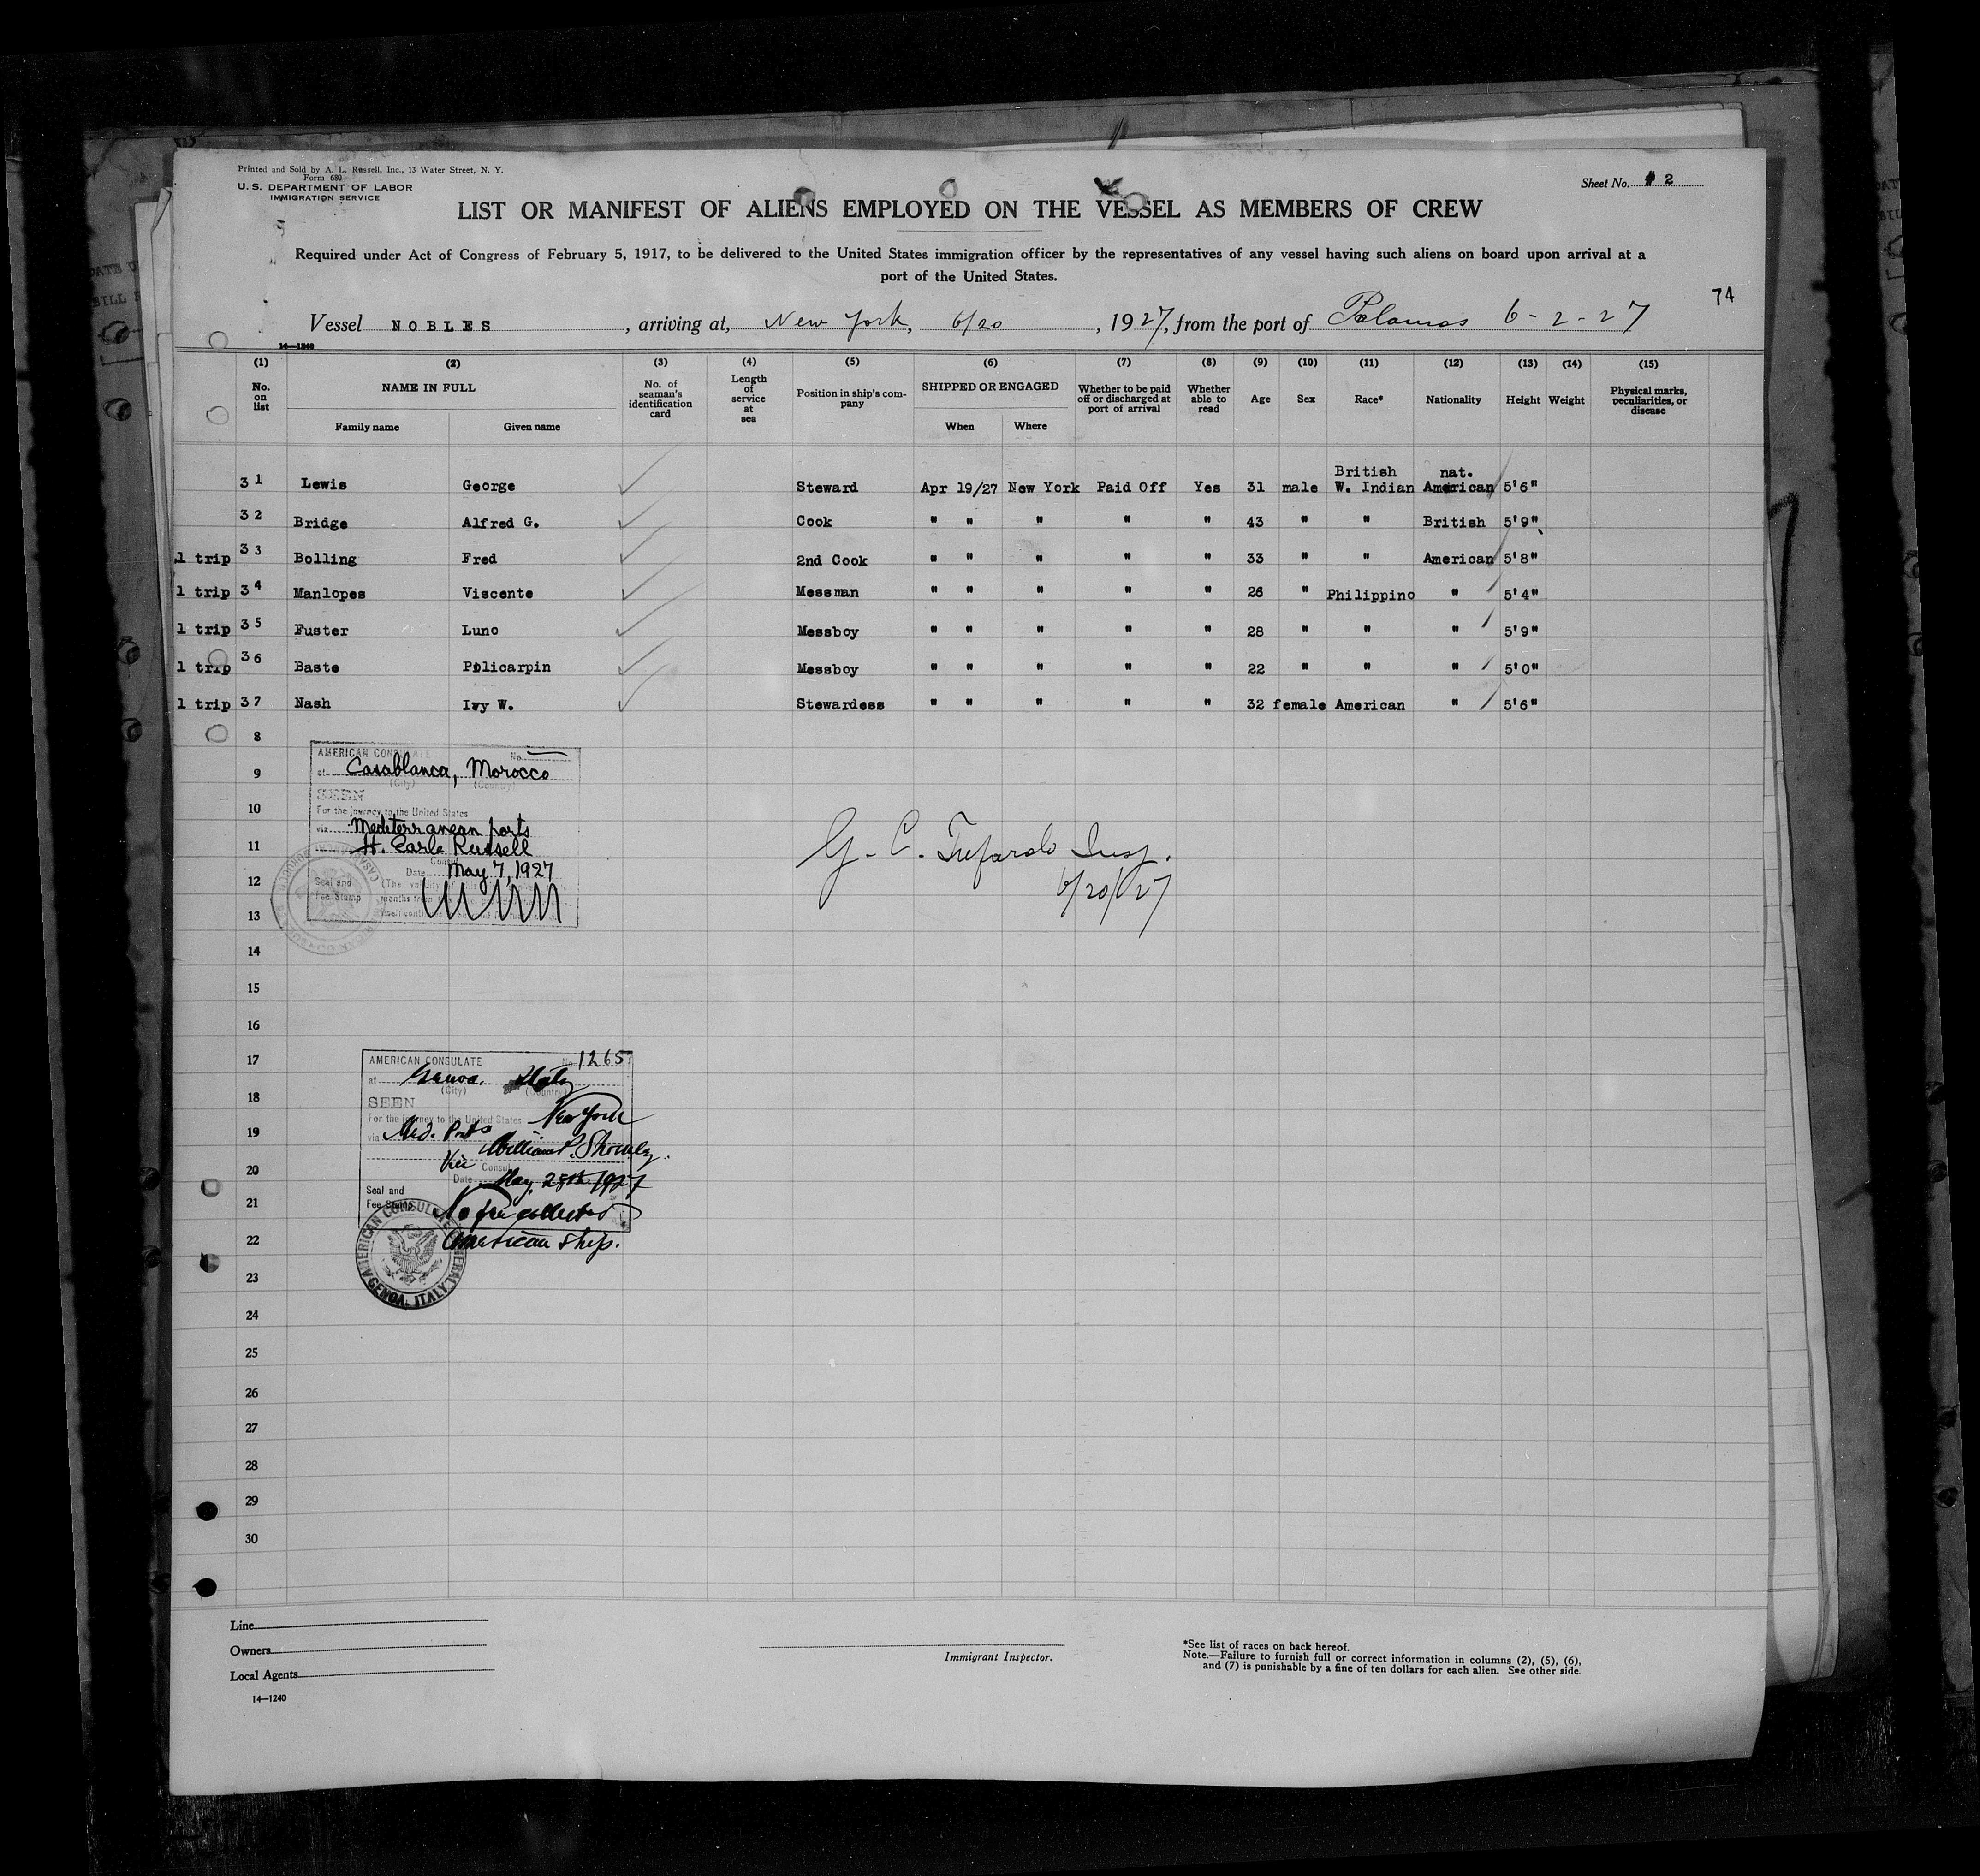 Printed and Sold by A. L. Russell, Inc., 13 Water Street, N. Y.
Form 680
U. S. DEPARTMENT OF LABOR
IMMIGRATION SERVICE
Sheet No. 2
LIST OR MANIFEST OF ALIENS EMPLOYED ON THE VESSEL AS MEMBERS OF CREW
Required under Act of Congress of February 5, 1917, to be delivered to the United States immigration officer by the representatives of any vessel having such aliens on board upon arrival at a
port of the United States.
74
Vessel NOBLES, arriving at, New York, 6/20, 1927, from the port of Palamos 6-2-27
14—1240
(1) (2) (3) (4) (5) (6) (7) (8) (9) (10) (11) (12) (13) (14) (15)
No. on list NAME IN FULL Family name Given name No. of seaman's identification card Length of service at sea Position in ship's company SHIPPED OR ENGAGED When Where Whether to be paid off or discharged at port of arrival Whether able to read Age Sex Race* Nationality Height Weight Physical marks, peculiarities, or disease
31 Lewis George Steward Apr 19/27 New York Paid Off Yes 31 male British W. Indian nat. American 5'6"
32 Bridge Alfred G. Cook " " " " " 43 " " British 5'9"
1 trip 33 Bolling Fred 2nd Cook " " " " " 33 " " American 5'8"
1 trip 34 Manlopes Viscente Messman " " " " " 26 " Philippino " 5'4"
1 trip 35 Fuster Luno Messboy " " " " " 28 " " " 5'9"
1 trip 36 Baste Policarpin Messboy " " " " " 22 " " " 5'0"
1 trip 37 Nash Ivy W. Stewardess " " " " " 32 female American " 5'6"
8
9
10
11
12
13
14
15
16
17
18
19
20
21
22
23
24
25
26
27
28
29
30
AMERICAN CONSULATE No.
at Casablanca, Morocco
(City) (Country)
SEEN
For the journey to the United States
via Mediterranean ports
H. Earle Russell
Consul
Date May 7, 1927
Seal and
Fee Stamp
G. C. Insp.
6/20/27
AMERICAN CONSULATE No. 1265
at Genoa, Italy
(City) (Country)
SEEN
For the journey to the United States New York
via Med. Ports
William P. Shockley
Vice Consul
Date May 25th 1927
Seal and
Fee Stamp No fee collected
American ship.
AMERICAN CONSULATE GENERAL
GENOA, ITALY
Line
Owners
Local Agents
14—1240
Immigrant Inspector.
*See list of races on back hereof.
Note.—Failure to furnish full or correct information in columns (2), (5), (6),
and (7) is punishable by a fine of ten dollars for each alien. See other side.